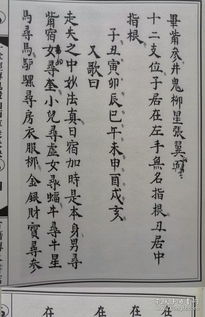 畢觜參井鬼柳星張翼軫
十二支位子居在左手無名指根丑居中
指根
子丑寅卯辰巳午未申酉戌亥
又歌曰
走失之中妙法真日宿加時是本身男尋
觜宿女尋奎小兒尋虛女尋蝠牛尋牛星
馬尋馬驢騾尋房衣服柳金銀財寶尋參
在
在
在
在
在